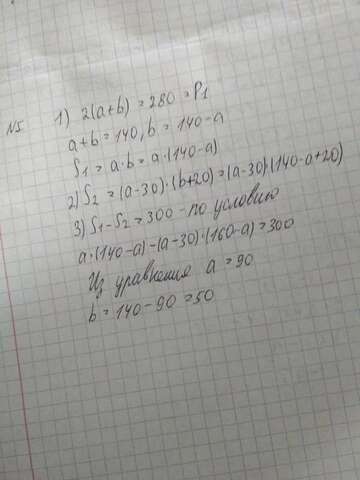 N5 1) 2(a+b) = 280 = P₁
a+b = 140, b = 140-a
S₁ = a·b = a·(140-a)
2) S₂ = (a-30)·(b+20) = (a-30)·(140-a+20)
3) S₁-S₂ = 300 - по условию
a·(140-a)-(a-30)·(160-a) = 300
Из уравнения a = 90
b = 140-90 = 50